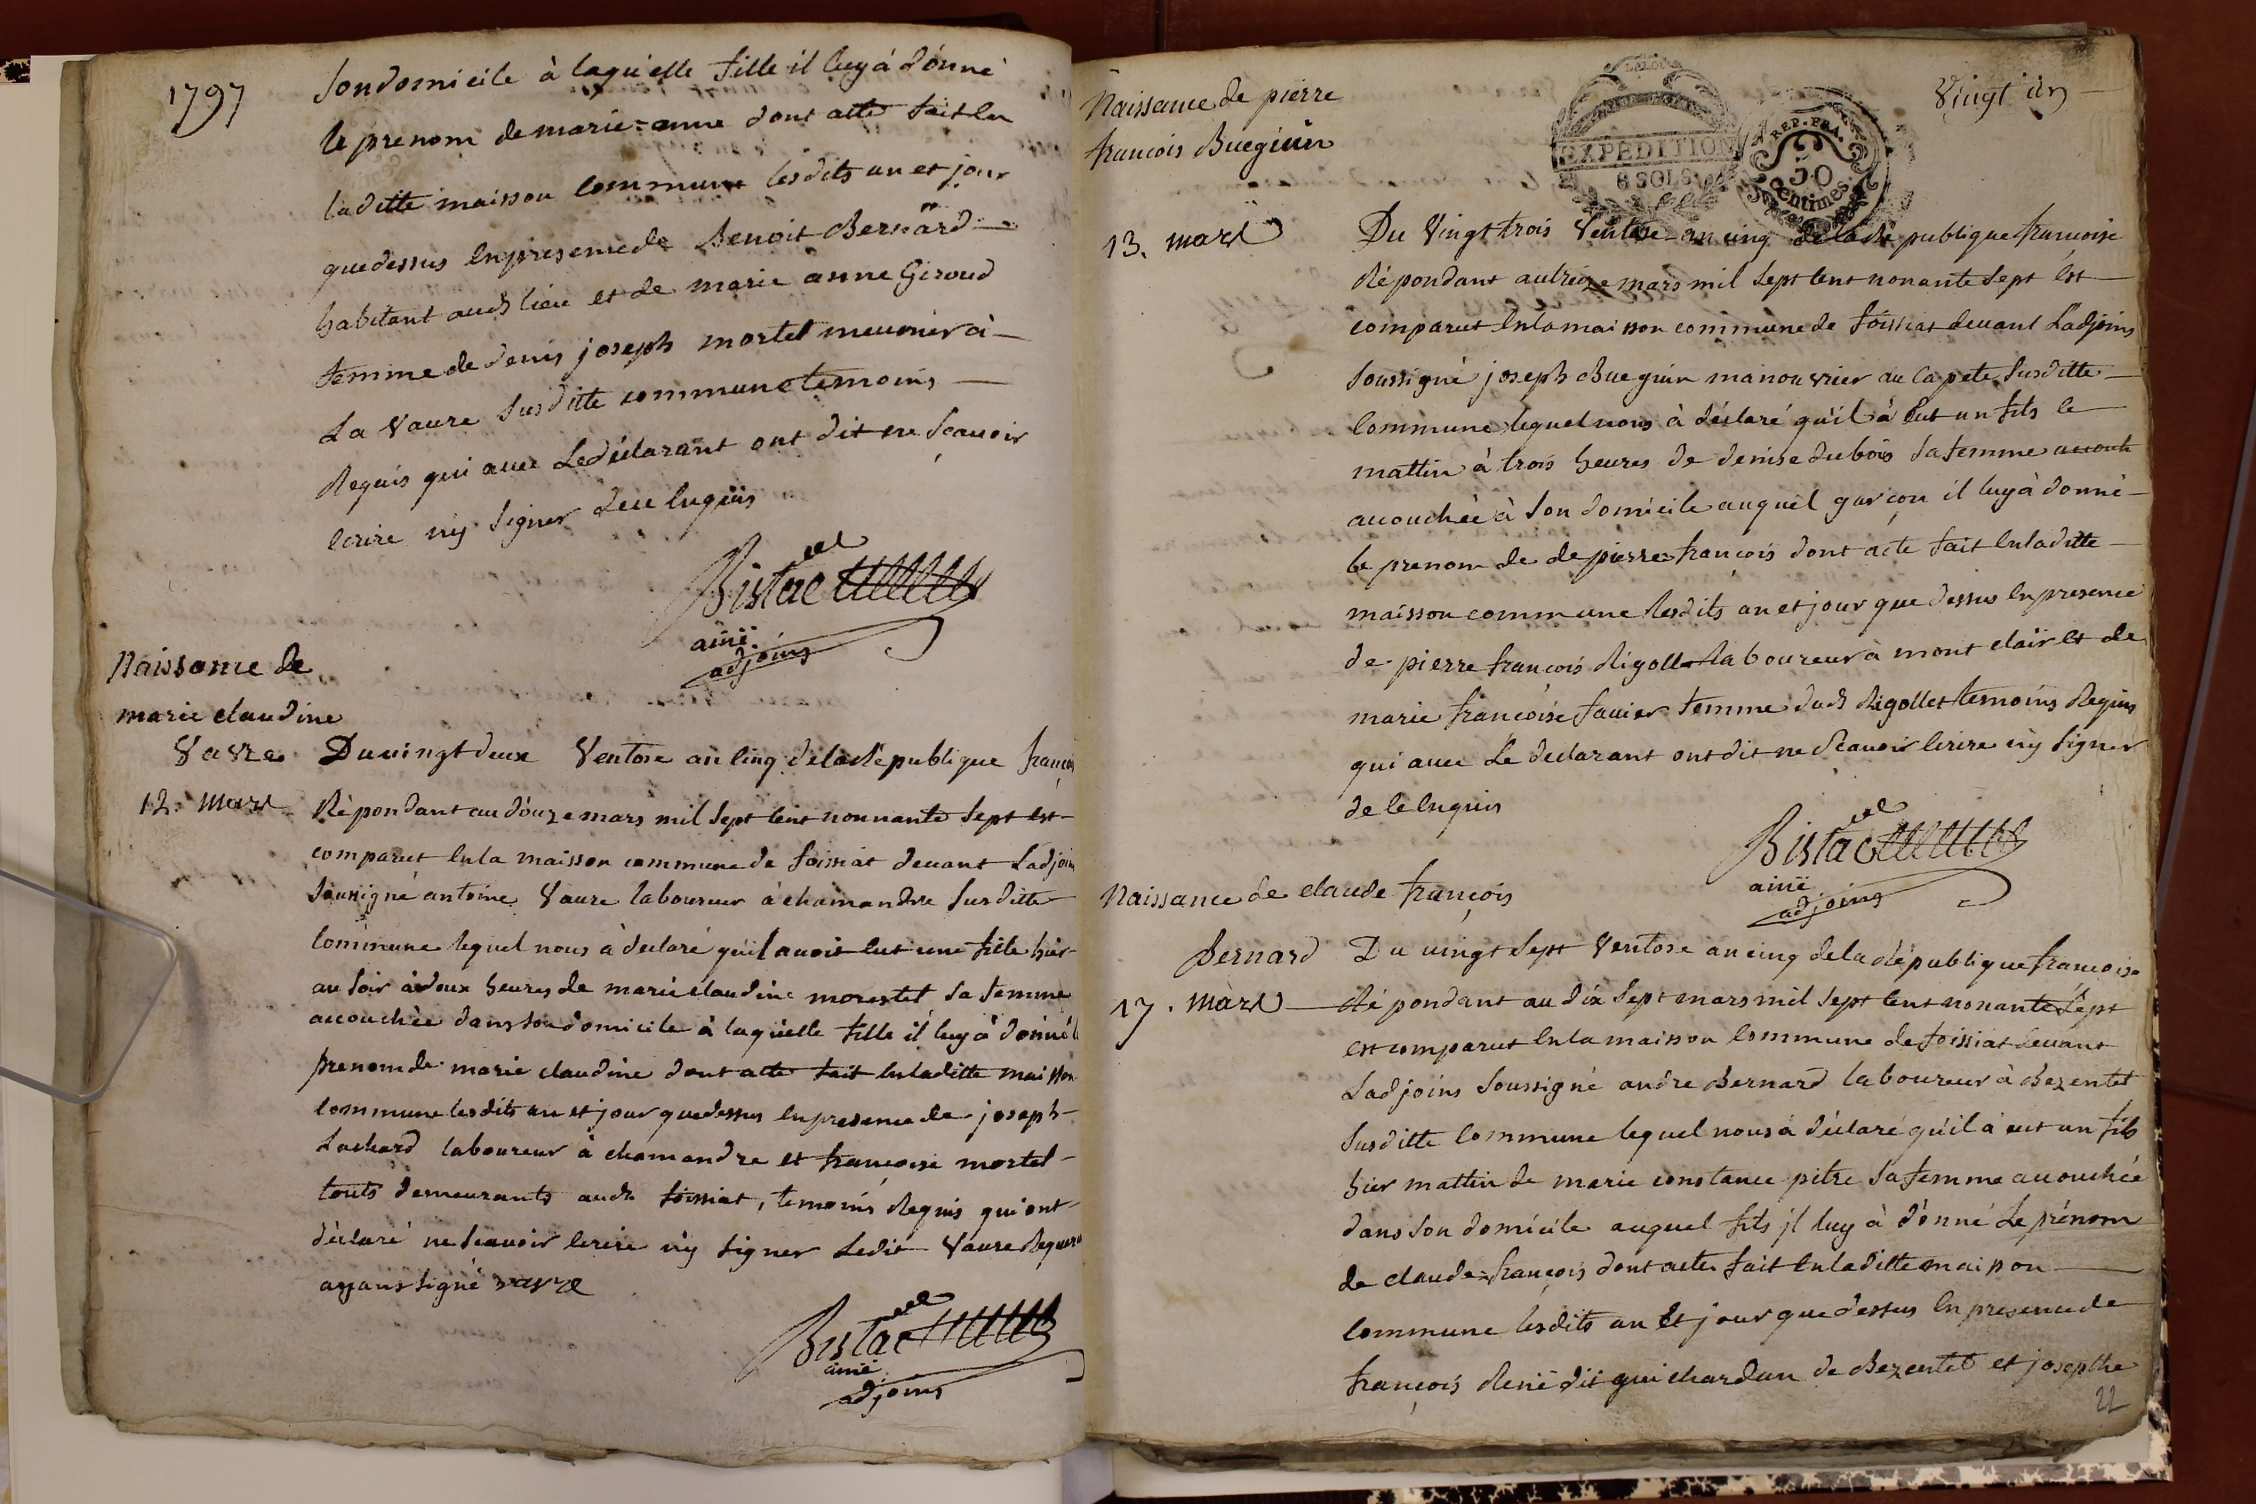 1797
son domicile à laquelle fille il luy à donné
le prenom de marie=anne dont acte fait en
laditte maison commune lesdits an et jour
que dessus en presence de Benoit Bernard
habitant audt lieu et de marie anne Giroud
femme de denis joseph mortel meunier à
La Vavre susditte commune temoins
Requis qui avec Le déclarant ont dit ne scavoir
ecrire ny signer de ce enquis
Bistac
ainé
adjoins
Naissance de
marie claudine
Vavre
12. mars
Du vingt deux Ventose an cinq de la République françois
Répondant au douze mars mil sept cent nonnante sept est
comparut en la maison commune de foissiat devant Ladjoin
soussigné antoine Vavre laboureur à chamandre susditte
commune lequel nous à déclaré qu'il avoit eut une fille hier
au soir à deux heures de marie claudine morestel sa femme
acouchée dans son domicile à laquelle fille il luy à donné l
prenom de marie claudine dont acte fait en laditte maison
commune lesdits an et jour que dessus en presence de joseph
Lachard laboureur à chamandre et francoise mortel
touts demeurants audt foissiat, temoins Requis qui ont
déclaré ne scavoir ecrire ny signer Ledit Vavre Requerr
ayant signé vavre
Bistac
ainé
adjoins
Vingt un
Naissance de pierre
francois Bueguin
EXPEDITION
6 SOLS
REP. FRA.
50
Centimes
13. mars
Du Vingt trois Ventose an cinq de la Republique francoise
Répondant au treize mars mil sept cent nonante sept est
comparut en la maison commune de foissiat devant Ladjoins
soussigné joseph Bueguin manouvrier au Capete susditte
commune lequel nous à déclaré qu'il à eut un fils le
mattin à trois heures de denise dubois sa femme acouch
acouchée à son domicile auquel garcon il luy à donné
le prenom de de pierre=francois dont acte fait en laditte
maison commune lesdits an et jour que dessus en presence
de pierre francois Rigollet laboureur à mont clair et de
marie francoise favier femme dudt Rigollet temoins Requis
qui avec Le declarant ont dit ne scavoir ecrire ny signer
de ce enquis
Bistac
ainé
adjoins
Naissance de claude françois
Bernard
17. mars
Du vingt sept Ventose an cinq de la République francoise
Répondant au dix sept mars mil sept cent nonante sept
est comparut en la maison commune de foissiat devant
Ladjoins soussigné andre Bernard laboureur à Bezentet
susditte commune lequel nous à déclaré qu'il à eut un fils
hier mattin de marie constance pitre sa femme acouchée
dans son domicile auquel fils il luy à donné Le prénom
de claude=françois dont acte fait en laditte maison
commune lesdits an et jour que dessus en presence de
françois René dit guichardan de Bezentet et josepthe
22